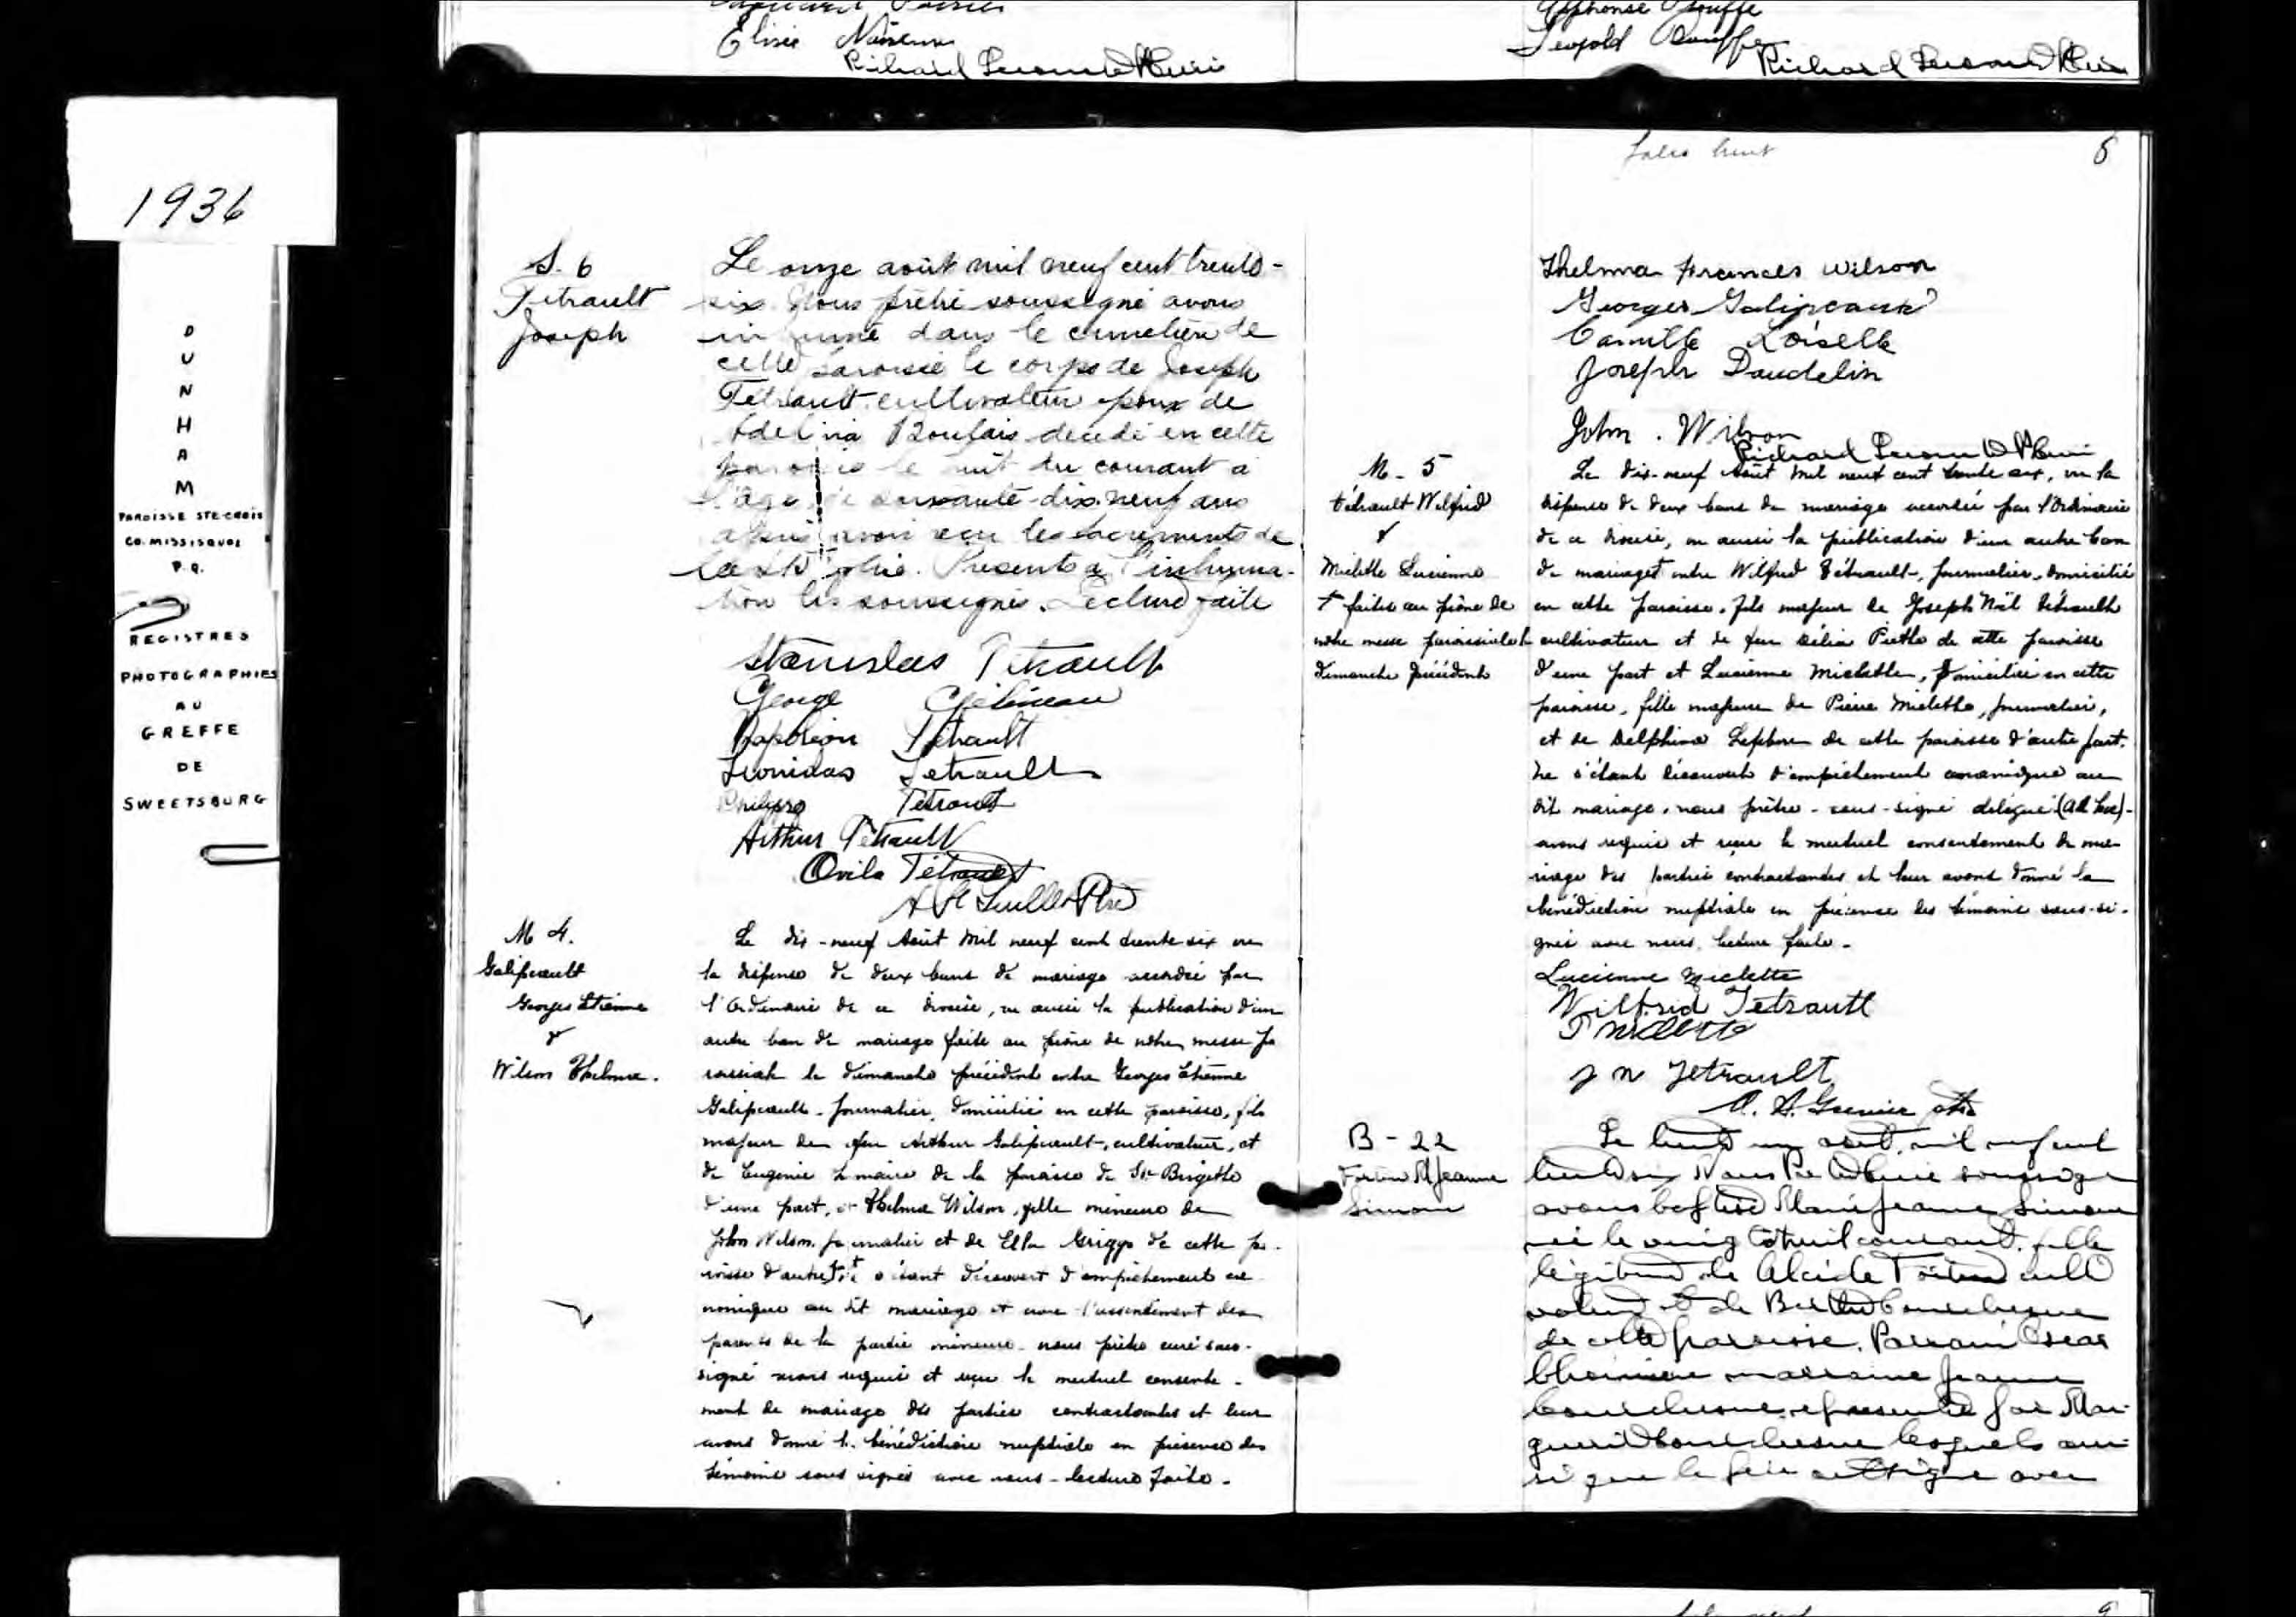 Elisée
Richard
Alphonse
Léopold
Richard
1936
DUNHAM
PAROISSE STE-CROIX
CO. MISSISQUOI
P.Q.
REGISTRES
PHOTOGRAPHIES
AU
GREFFE
DE
SWEETSBURG
S. 6
Tétrault
Joseph
Le onze août mil neuf cent trente-
six Nous prêtre soussigné avons
inhumé dans le cimetière de
cette paroisse le corps de Joseph
Tétrault cultivateur époux de
Adelina décédé en cette
paroisse le huit du courant à
l'âge de soixante-dix-neuf ans
après avoir reçu les sacrements de
la Ste Eglise. Présents à l'inhuma-
tion les soussignés. Lecture faite
Stanislas Tétrault
George Gélineau
Napoléon Tétrault
Léonidas Tetrault
Philippe Tétrault
Arthur Tétrault
Ovila Tétrault
Ptre
M 4.
Galipeault
Georges Etienne
&
Wilson Thelma.
Le dix-neuf Août mil neuf cent trente six vu
la dispense de deux bans de mariage accordée par
l'Ordinaire de ce diocèse, vu aussi la publication d'un
autre ban de mariage faite au prône de notre messe pa
roissiale le dimanche précédent entre Georges Etienne
Galipeault - journalier, domicilié en cette paroisse, fils
majeur de feu Arthur Galipeault, cultivateur, et
de Eugenie Lemaire de la paroisse de Ste Brigitte
d'une part, et Thelma Wilson, fille mineure de
John Wilson, journalier et de Ella Griggs de cette pa-
roisse d'autre part s'étant découvert d'empêchement ca
nonique au dit mariage et avec l'assentiment des
parents de la partie mineure - nous prêtre curé sous-
signé avons requis et reçu le mutuel consente-
ment de mariage des parties contractantes et leur
avons donné la bénédiction nuptiale en présence des
témoins sous signés avec nous - lecture faite.
folio huit 8
Thelma Frances Wilson
Georges Galipeault
Camille Loiselle
Joseph Daudelin
John. Wilson
Richard
M - 5
Tétrault Wilfrid
&
Miclette Lucienne
+ faites au prône de
notre messe paroissiale le
dimanche précédent
Le dix-neuf Août mil neuf cent trente six, vu la
dispense de deux bans de mariage accordée par l'Ordinaire
de ce diocèse, vu aussi la publication d'un autre ban
de mariage+ entre Wilfrid Tétrault, journalier, domicilié
en cette paroisse, fils majeur de Joseph Noël Tétrault
cultivateur et de feu Délia de cette paroisse
d'une part et Lucienne Miclette, domiciliée en cette
paroisse, fille majeure de Pierre Miclette, journalier,
et de Delphine Lefebvre de cette paroisse d'autre part.
Ne s'étant découvert d'empêchement canonique au
dit mariage, nous prêtre - sous-signé délégué (ad hoc) -
avons requis et reçu le mutuel consentement de ma-
riage des parties contractantes et leur avons donné la
bénédiction nuptiale en présence des témoins sous-si-
gnés avec nous, lecture faite -
Lucienne Miclette
Wilfrid Tétrault
P Miclette
J N Tetrault
A. Grenier ptre
B - 22
Fortin M Jeanne
Simone
Le trente un août, mil neuf cent
trente six Nous Ptre Curé soussigné
avons baptisé Marie Jeanne Simone
née le vingt huit courant, fille
légitime de Alcide Fortin culti
vateur et de Berthe Bourchesne
de cette paroisse. Parrain Oscar
marraine Jeanne
représentée par Mar-
guerite lesquels ain-
si que le père ont signé avec